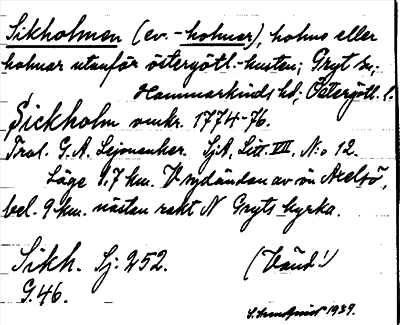 Sikholmen (ev. -holmar), holme eller
holmar utanför östergötl.-kusten; Gryt sn;
Hammarkinds hd, Östergötl. l.
Sickholm omkr. 1774-76.
Trol. G. A. Lejonankar. SjA, Litt. VII, N:o 12.
Läge 1.7 km. V sydändan av ön Axelsö,
bel. 9 km. nästan rakt N Gryts kyrka.
Sikh. Sj: 252. (Vänd!)
G. 46.
1939.